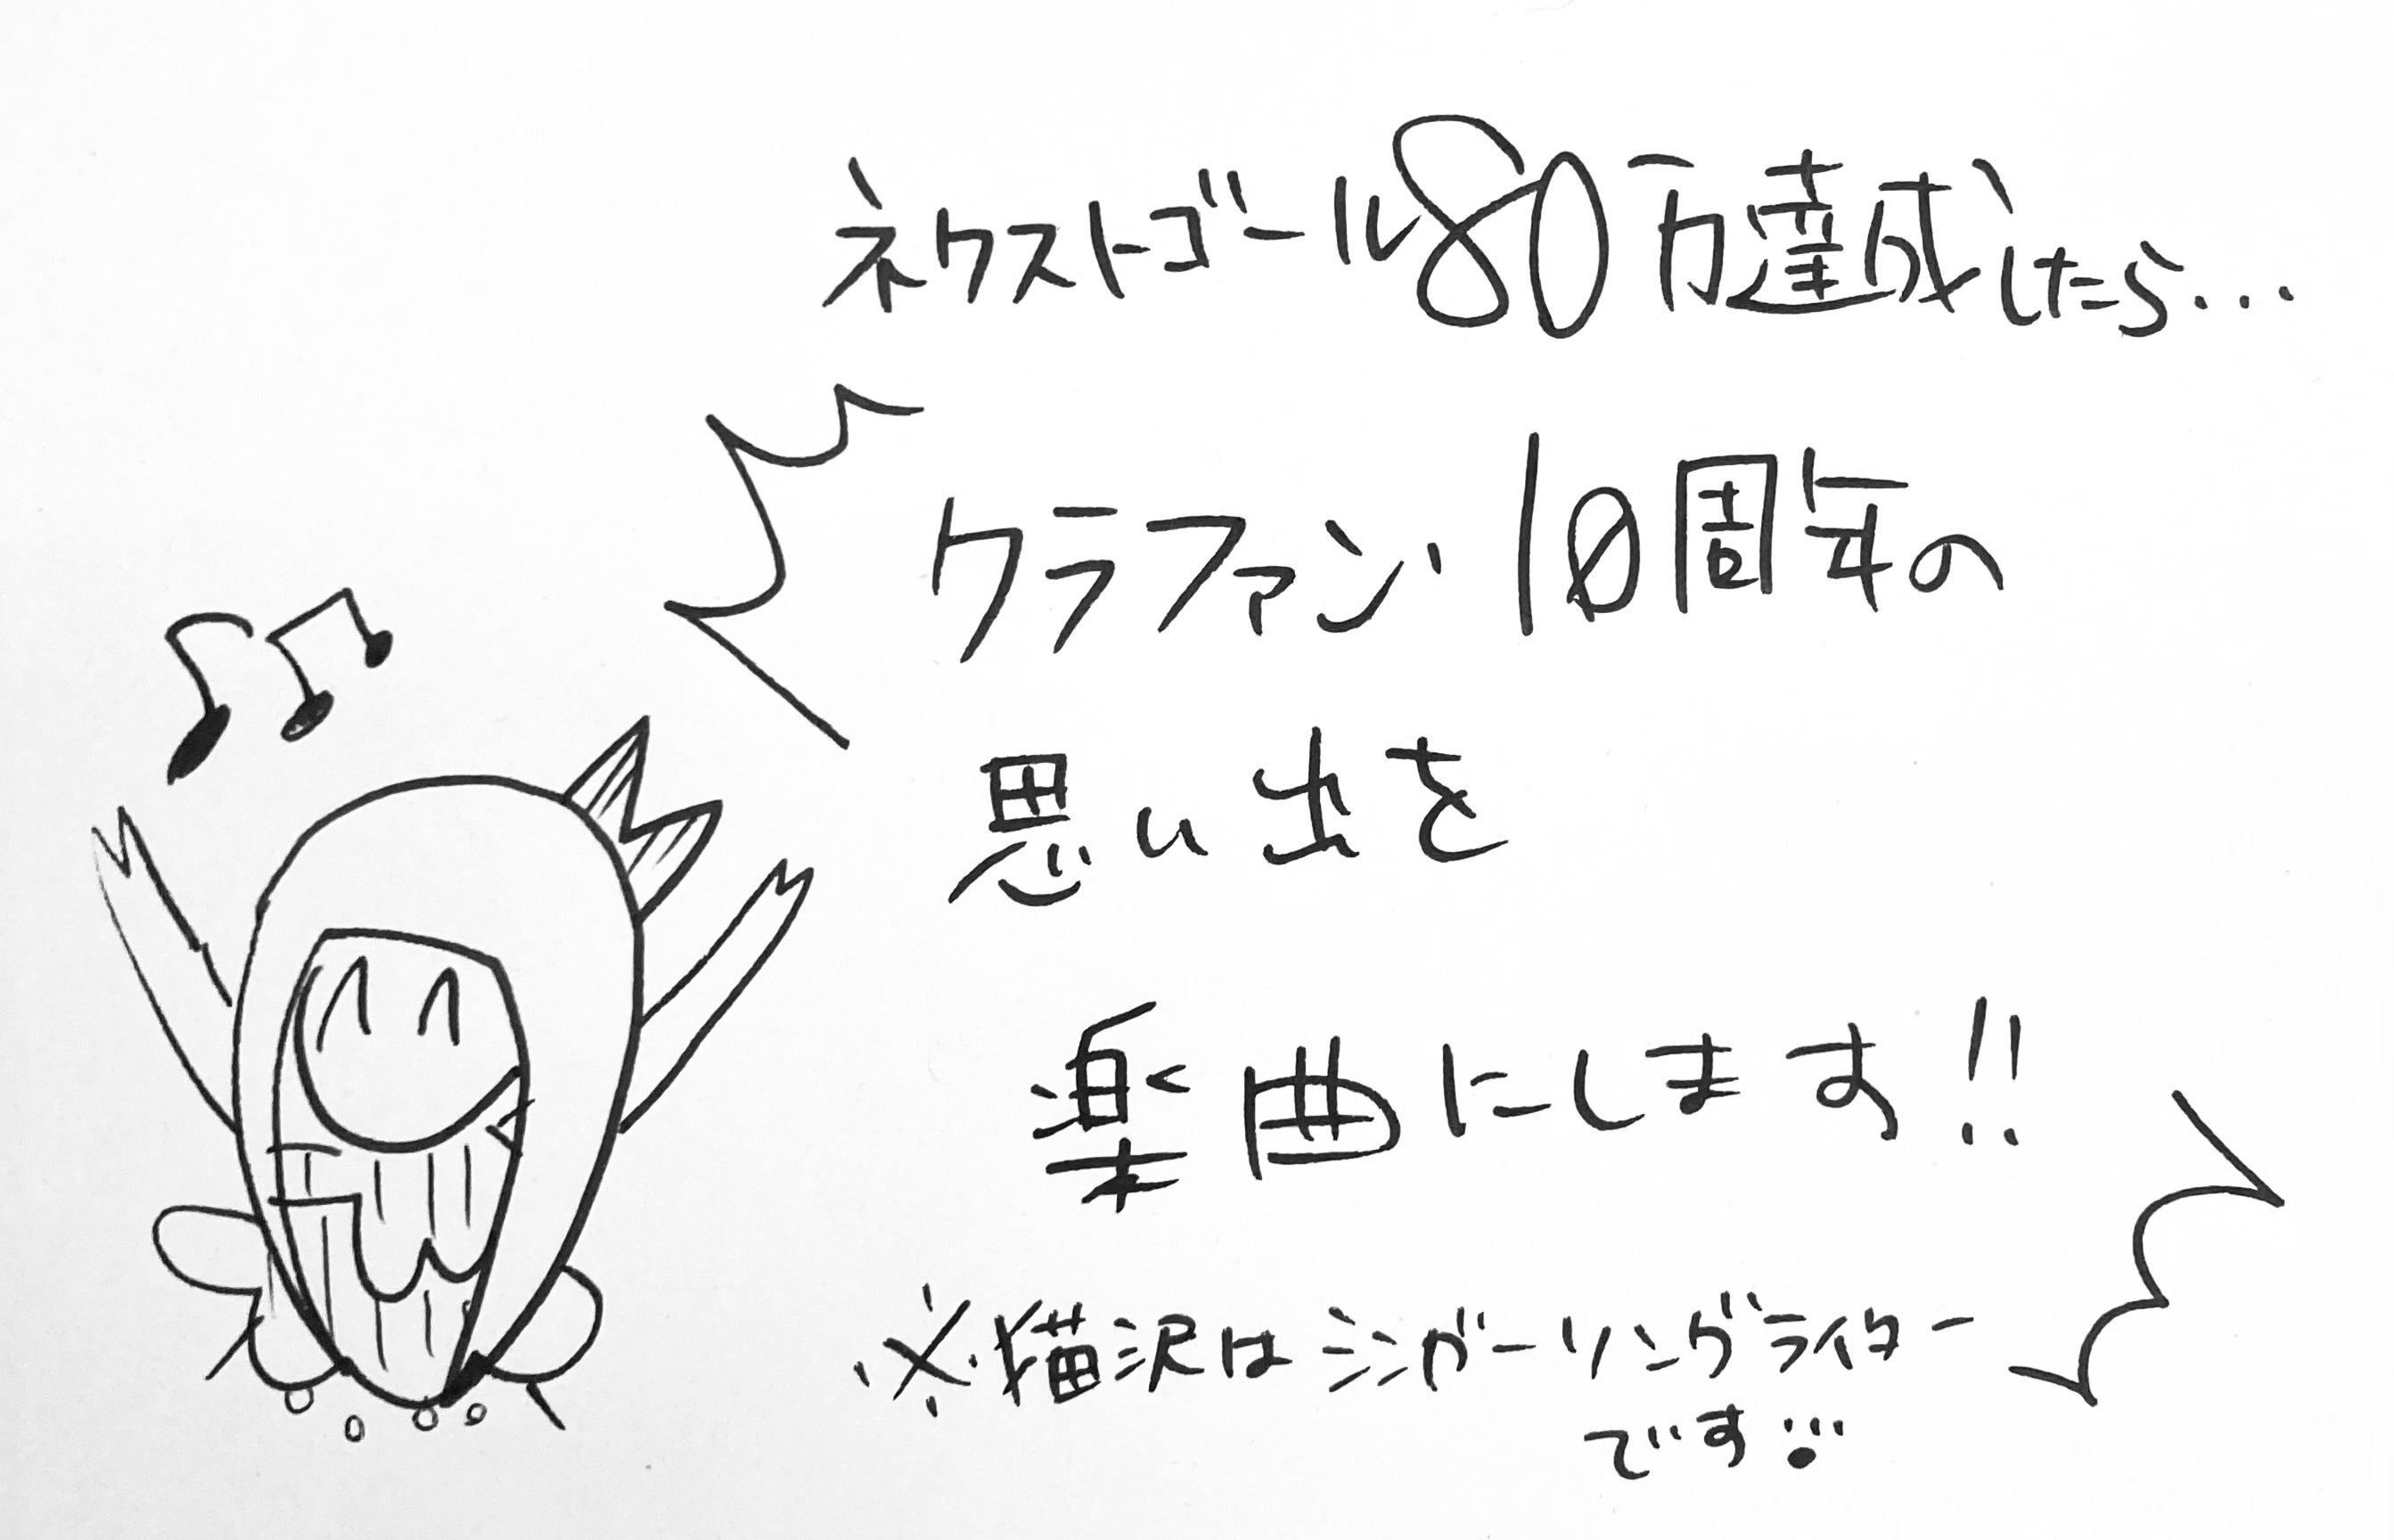 ネクストゴール80万達成したら...
クラファン10周年の
思い出を
楽曲にします!!
※猫沢はシンガーソングライター
です